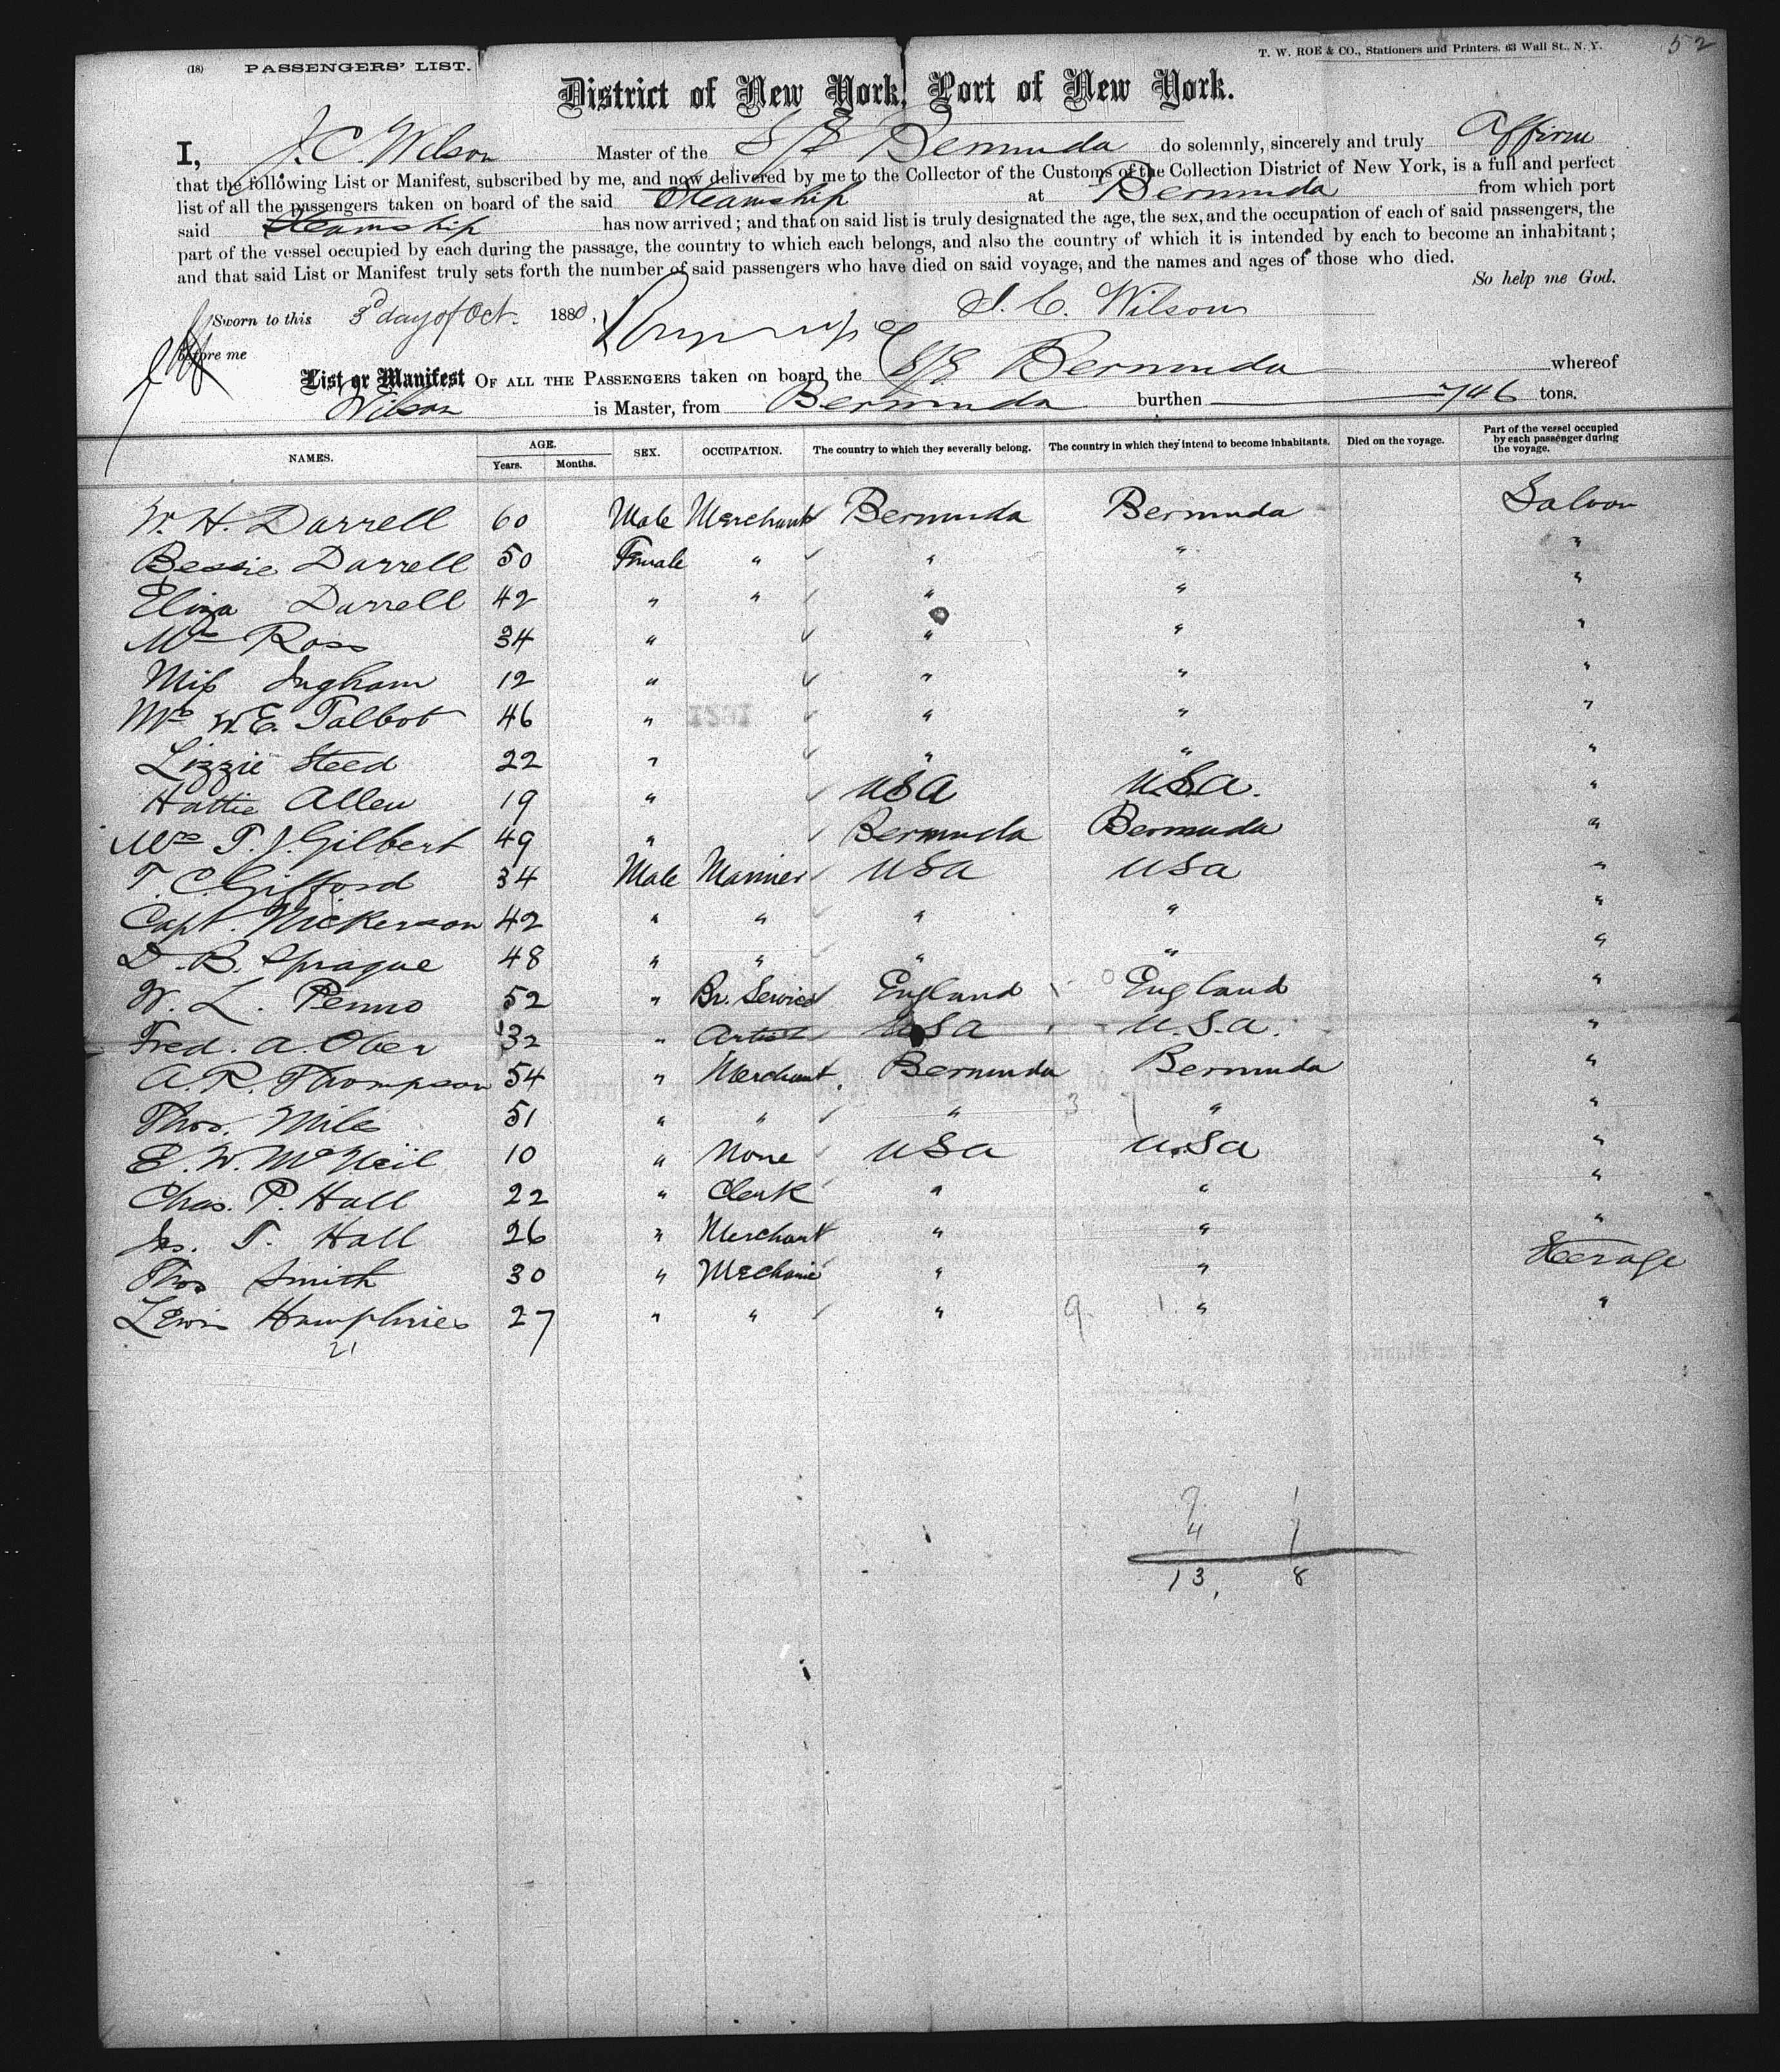 52
T. W. ROE & CO., Stationers and Printers, 63 Wall St., N. Y.
(18) PASSENGERS' LIST.
District of New York, Port of New York.
I, J. C. Wilson Master of the S/S Bermuda do solemnly, sincerely and truly Affirm
that the following List or Manifest, subscribed by me, and now delivered by me to the Collector of the Customs of the Collection District of New York, is a full and perfect
list of all the passengers taken on board of the said Steamship at Bermuda from which port
said Steamship has now arrived; and that on said list is truly designated the age, the sex, and the occupation of each of said passengers, the
part of the vessel occupied by each during the passage, the country to which each belongs, and also the country of which it is intended by each to become an inhabitant;
and that said List or Manifest truly sets forth the number of said passengers who have died on said voyage, and the names and ages of those who died.
So help me God.
Sworn to this 3d day of Oct. 1880, J. C. Wilson
before me
List or Manifest OF ALL THE PASSENGERS taken on board the S/S Bermuda whereof
Wilson is Master, from Bermuda burthen 746 tons.
NAMES. AGE. Years. Months. SEX. OCCUPATION. The country to which they severally belong. The country in which they intend to become inhabitants. Died on the voyage. Part of the vessel occupied by each passenger during the voyage.
W. H. Darrell 60 Male Merchant Bermuda Bermuda Saloon
Bessie Darrell 50 Female " " " "
Eliza Darrell 42 " " " " "
Mrs Ross 34 " " " "
Miss Ingham 12 " " " "
Mrs W. E. Talbot 46 " " " "
Lizzie Steed 22 " " " "
Hattie Allen 19 " USA U.S.A. "
Mrs T. J. Gilbert 49 " Bermuda Bermuda "
T. C. Gifford 34 Male Mariner USA USA "
Capt. Nickerson 42 " " " " "
D. B. Sprague 48 " " " " "
W. L. Penno 52 " Br. Service England England "
Fred. A. Ober 32 " Artist USA U.S.A. "
A. R. Thompson 54 " Merchant Bermuda Bermuda "
Thos. Miles 51 " " " 3 1 " "
E. W. McNeil 10 " None USA U.SA "
Chas. P. Hall 22 " Clerk " " "
Jas. T. Hall 26 " Merchant " " "
Thos Smith 30 " Mechanic " " Steerage
Lewis Humphries 27 " " " 9 1 " "
21
9 1
4 7
13, 8